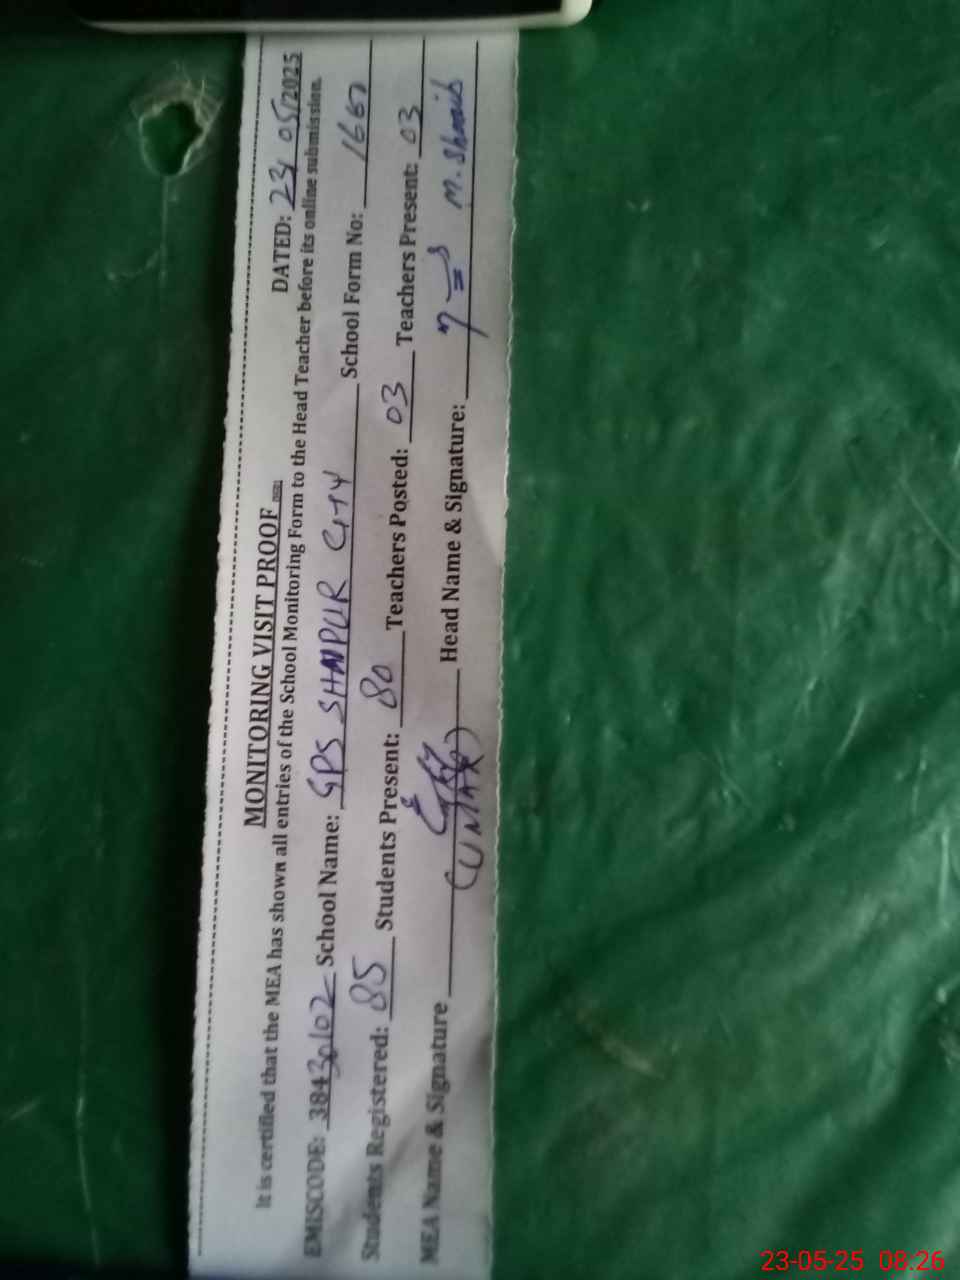 MONITORING VISIT PROOF
DATED: 23/05/2025
It is certified that the MEA has shown all entries of the School Monitoring Form to the Head Teacher before its online submission.
EMISCODE: 38430102 School Name: GPS SHAPUR CITY School Form No: 1667
Students Registered: 85 Students Present: 80 Teachers Posted: 03 Teachers Present: 03
MEA Name & Signature (UMAR) Head Name & Signature: M. Shoaib
23-05-25 08:26